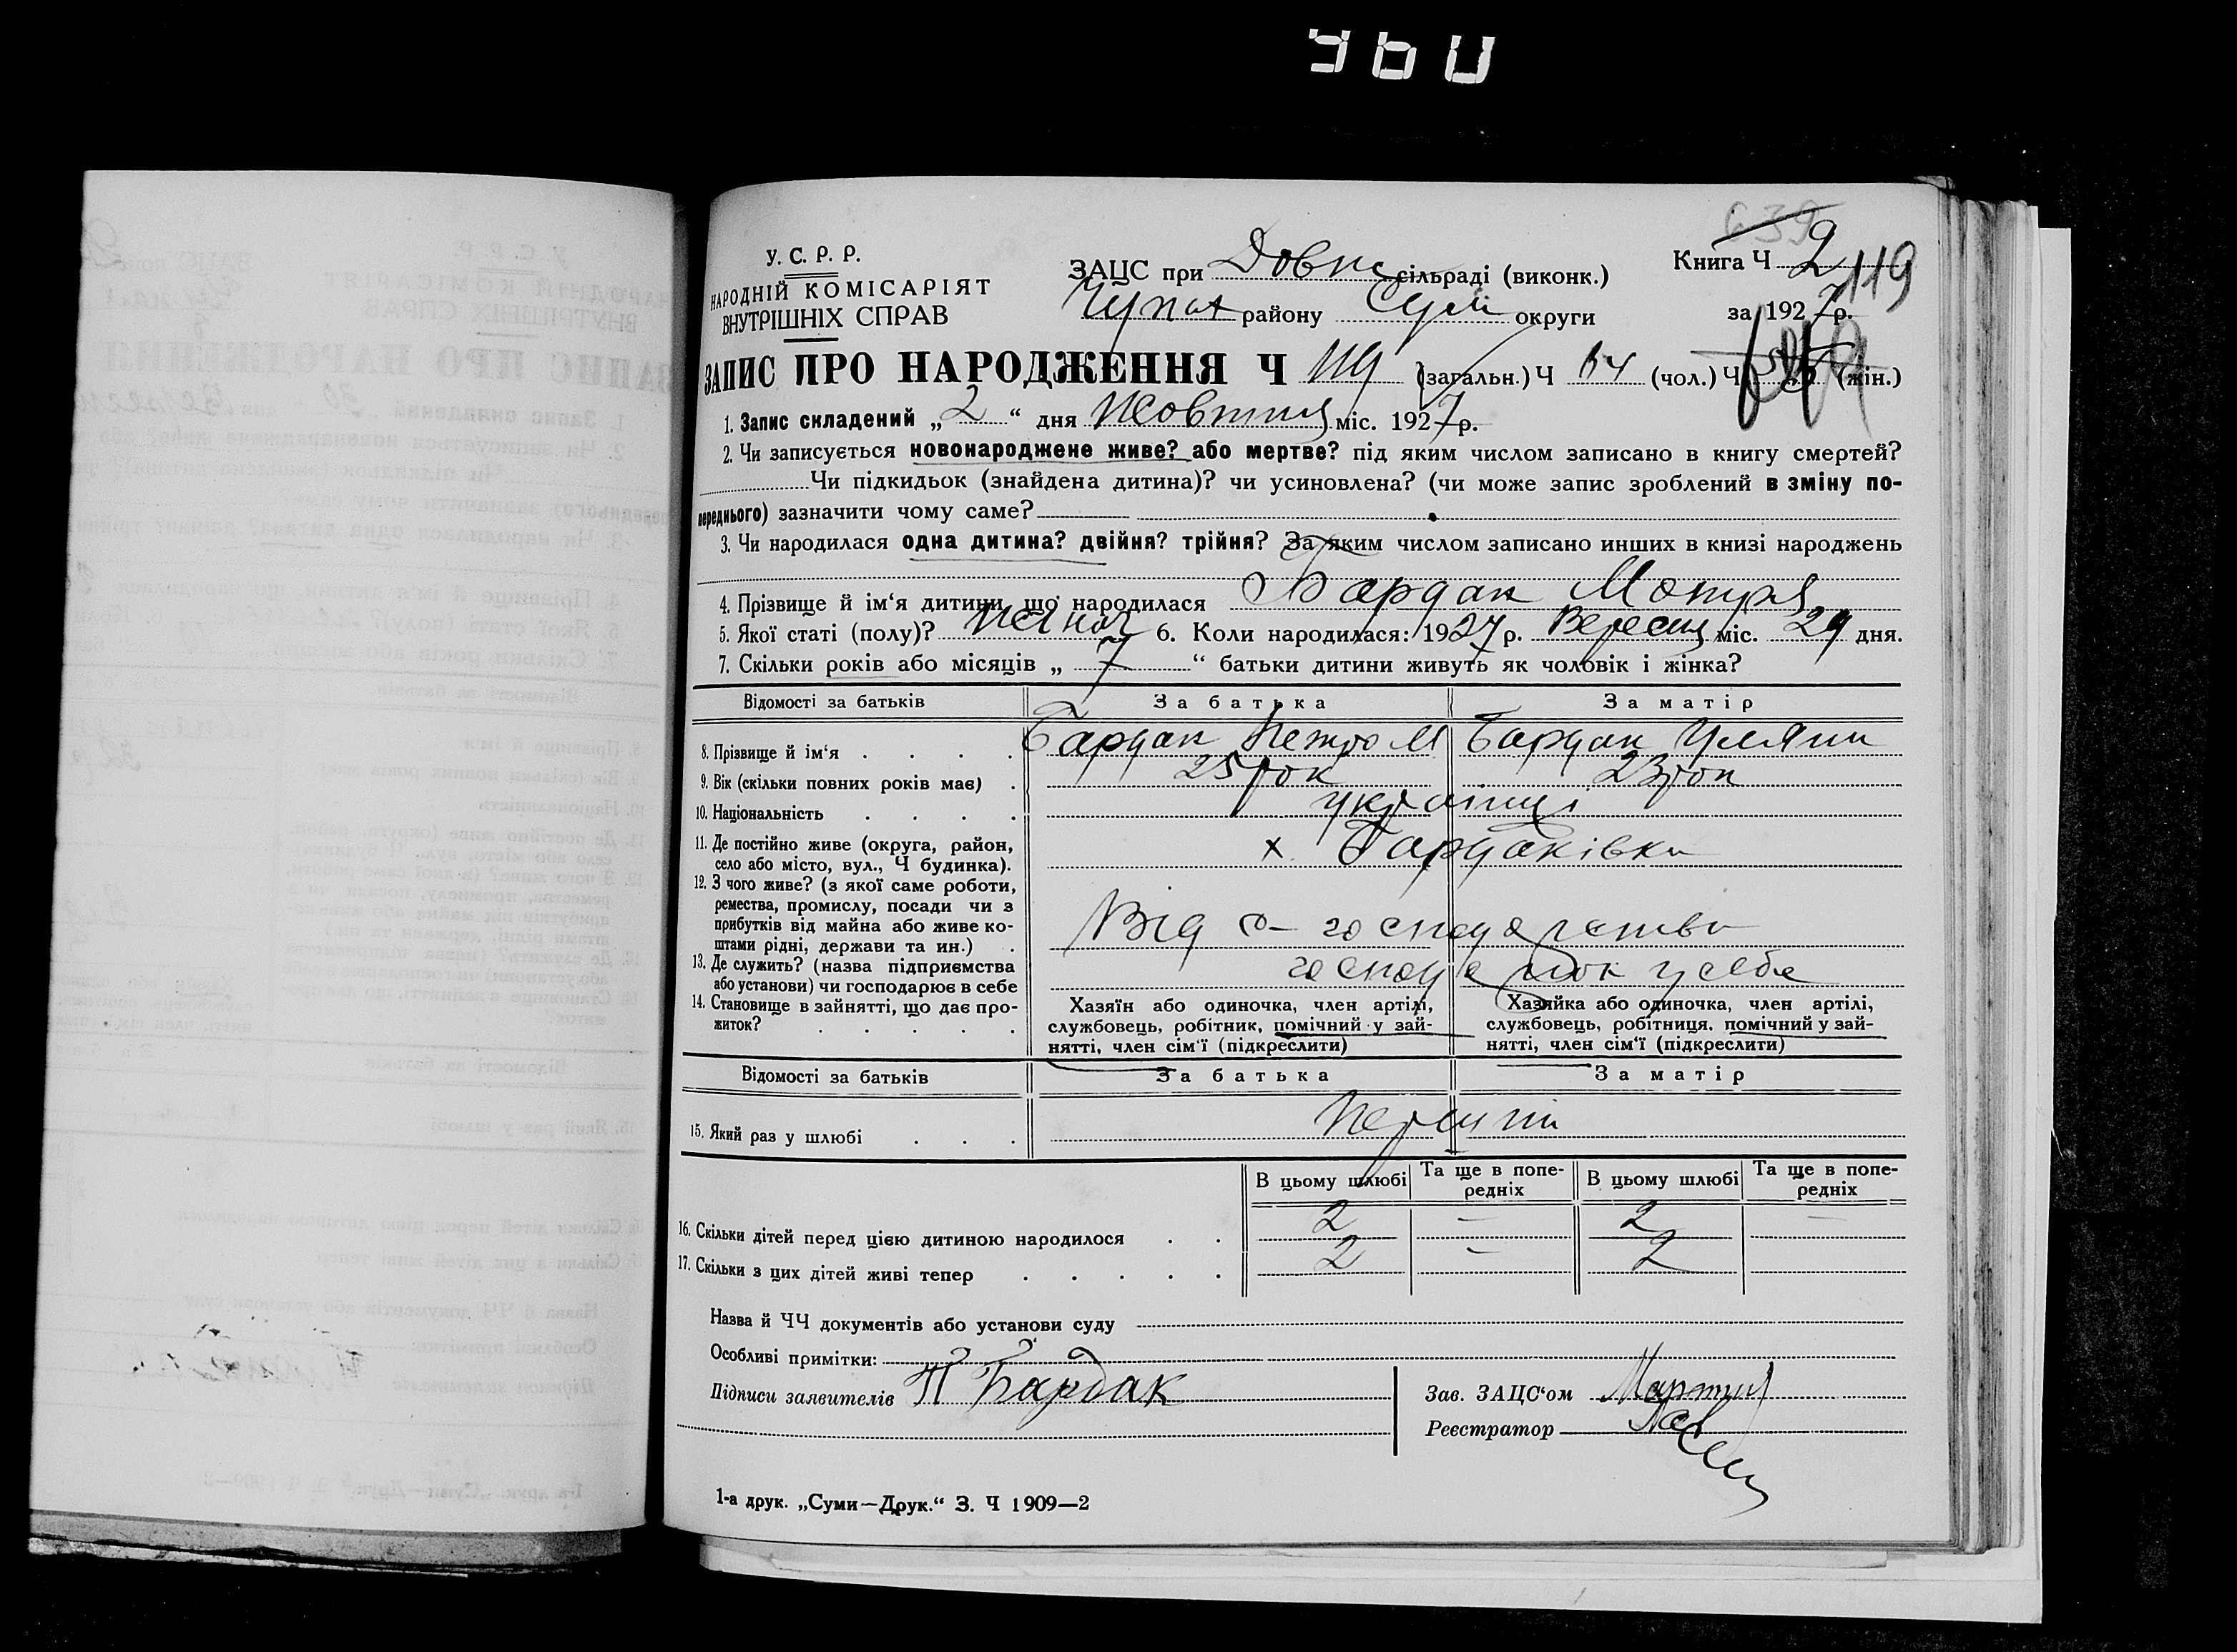 У. С. Р. Р.
НАРОДНІЙ КОМІСАРІЯТ
ВНУТРІШНІХ СПРАВ
639
ЗАЦС при Довж сільраді (виконк.)
Чупах району Сум округи
Книга Ч 2 119
за 1927 р.
ЗАПИС ПРО НАРОДЖЕННЯ Ч 119 (загальн.) Ч 64 (чол.) Ч (жін.)
1. Запис складений „2“ дня Жовтня міс. 1927 р.
2. Чи записується новонароджене живе? або мертве? під яким числом записано в книгу смертей?
Чи підкидьок (знайдена дитина)? чи усиновлена? (чи може запис зроблений в зміну по-
переднього) зазначити чому саме?
3. Чи народилася одна дитина? двійня? трійня? За яким числом записано инших в книзі народжень
4. Прізвище й ім‘я дитини, що народилася Бардак Мотря
5. Якої статі (полу)? Жіноч 6. Коли народилася: 1927 р. Вересня міс. 29 дня.
7. Скільки років або місяців „7“ батьки дитини живуть як чоловік і жінка?
Відомості за батьків За батька За матір
8. Прізвище й ім‘я Бардак Петро М Бардак Уляни
9. Вік (скільки повних років має) 25 рок 23 рок
10. Національність українці
11. Де постійно живе (округа, район,
село або місто, вул., Ч будинка). х. Бардаківка
12. З чого живе? (з якої саме роботи,
ремества, промислу, посади чи з
прибутків від майна або живе ко-
штами рідні, держави та ин.) Від с-господарства
13. Де служить? (назва підприємства
або установи) чи господарює в себе у себе
14. Становище в зайнятті, що дає про-
житок?
Хазяїн або одиночка, член артілі,
службовець, робітник, помічний у зай-
нятті, член сім‘ї (підкреслити)
Хазяйка або одиночка, член артілі,
службовець, робітниця, помічний у зай-
нятті, член сім‘ї (підкреслити)
Відомості за батьків За батька За матір
15. Який раз у шлюбі Перший
В цьому шлюбі Та ще в попе-
редніх В цьому шлюбі Та ще в попе-
редніх
16. Скільки дітей перед цією дитиною народилося 2 – 2 –
17. Скільки з цих дітей живі тепер 2 – 2
Назва й ЧЧ документів або установи суду
Особливі примітки:
Підписи заявителів П Бардак
Зав. ЗАЦС‘ом
Реєстратор
1-а друк. „Суми—Друк.“ З. Ч 1909—2